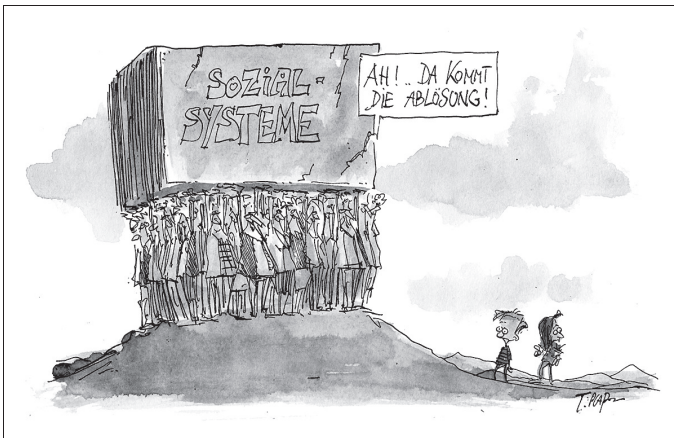 SOZIAL-
SYSTEME
AH!.. DA KOMMT
DIE ABLÖSUNG!